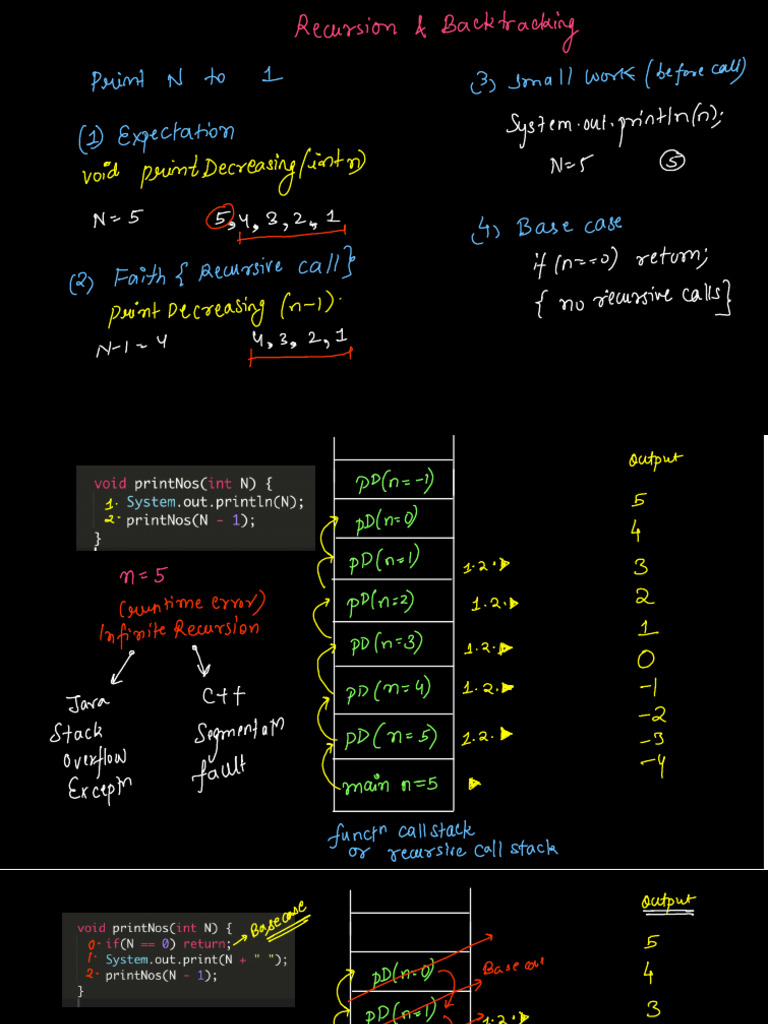 Recursion & Backtracking
Print N to 1
(1) Expectation
void printDecreasing(int n)
N=5 5, 4, 3, 2, 1
(2) Faith { Recursive call}
print Decreasing (n-1).
N-1=4 4, 3, 2, 1
(3) small work (before call)
System.out.println(n);
N=5 5
(4) Base case
if (n==0) return;
{ no recursive calls}
void printNos(int N) {
1. System.out.println(N);
2. printNos(N - 1);
}
n=5
(runtime error)
Infinite Recursion
Java
Stack
Overflow
Exceptn
C++
Segmentatn
fault
pD(n=-1)
pD(n=0)
pD(n=1) 1.2.
pD(n=2) 1.2.
pD(n=3) 1.2.
pD(n=4) 1.2.
pD(n=5) 1.2.
main n=5
functn call stack
or recursive call stack
output
5
4
3
2
1
0
-1
-2
-3
-4
void printNos(int N) {
0. if(N == 0) return; Base case
1. System.out.print(N + " ");
2. printNos(N - 1);
}
pD(n=0)
Base
pD(n=1) 1.2.
output
5
4
3